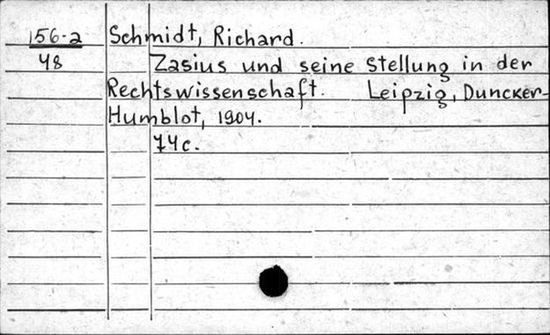 156-2 Schmidt, Richard.
48 Zasius und seine Stellung in der
Rechtswissenschaft. Leipzig, Duncker-
Humblot, 1904.
74 c.